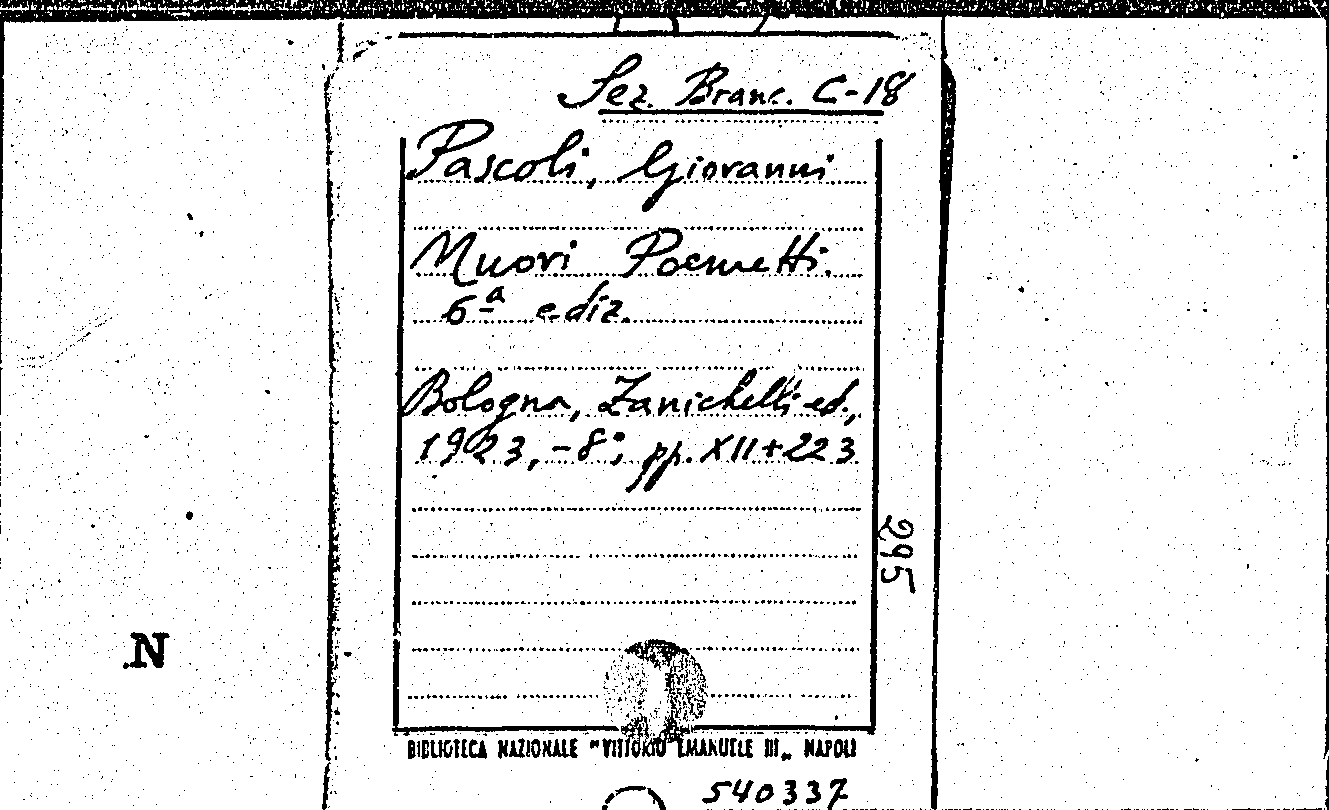 Sez. Branc. C-18
Pascoli, Giovanni
Nuovi Poemetti.
6ª ediz.
Bologna, Zanichelli ed.,
1923, -8°; pp. XII+223
295
N
BIBLIOTECA NAZIONALE "VITTORIO EMANUELE III„ NAPOLI
540337